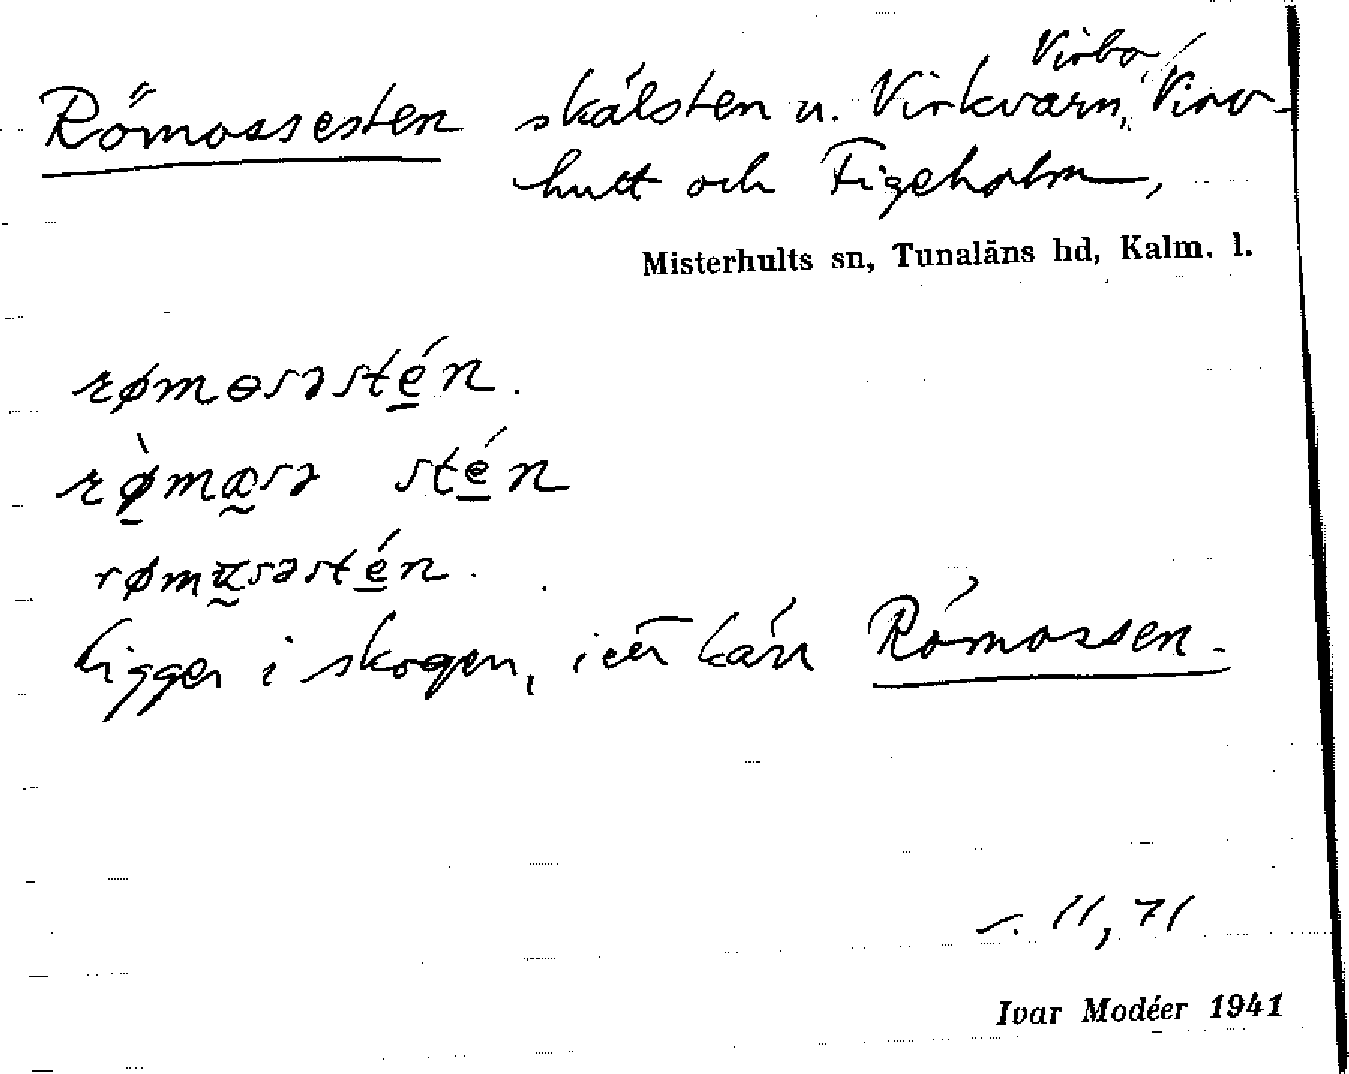 Virbo,
Römossesten skålsten u. Virkvarn, Virv-
hutt och Figeholm,
Misterhults sn, Tunaläns hd, Kalm. l.
römɵsəstén.
rø̀mɵsə stén
røm səstén.
Ligger i skogen, i ett kärr Römossen.
s. 11, 71
Ivar Modéer 1941